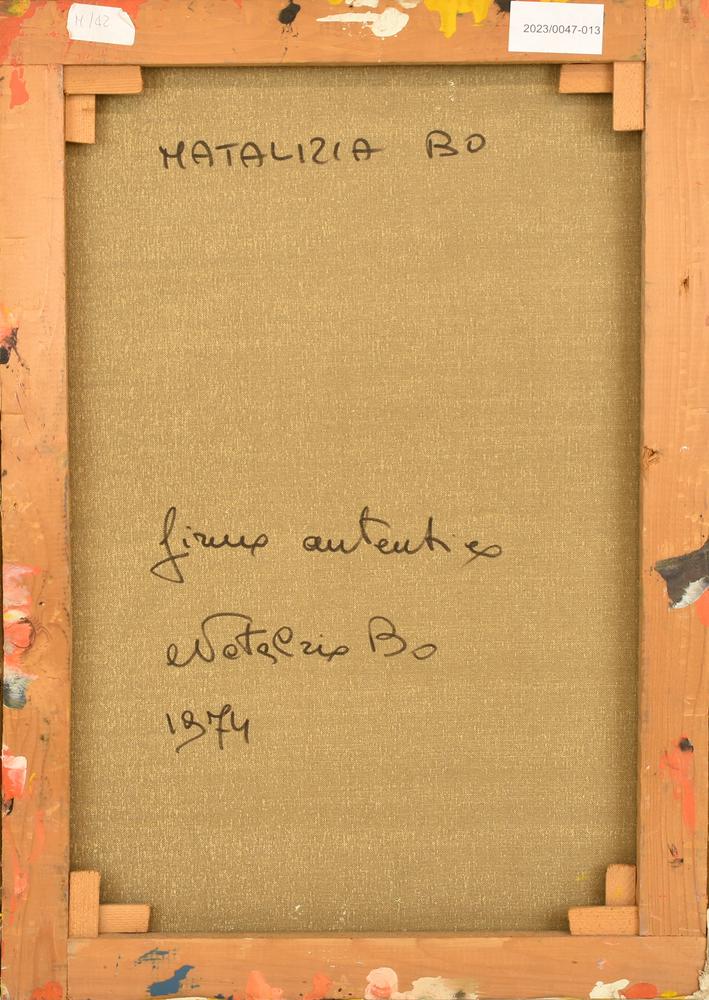 N/42
2023/0047-013
NATALIZIA BO
firma autentica
Natalizia Bo
1974